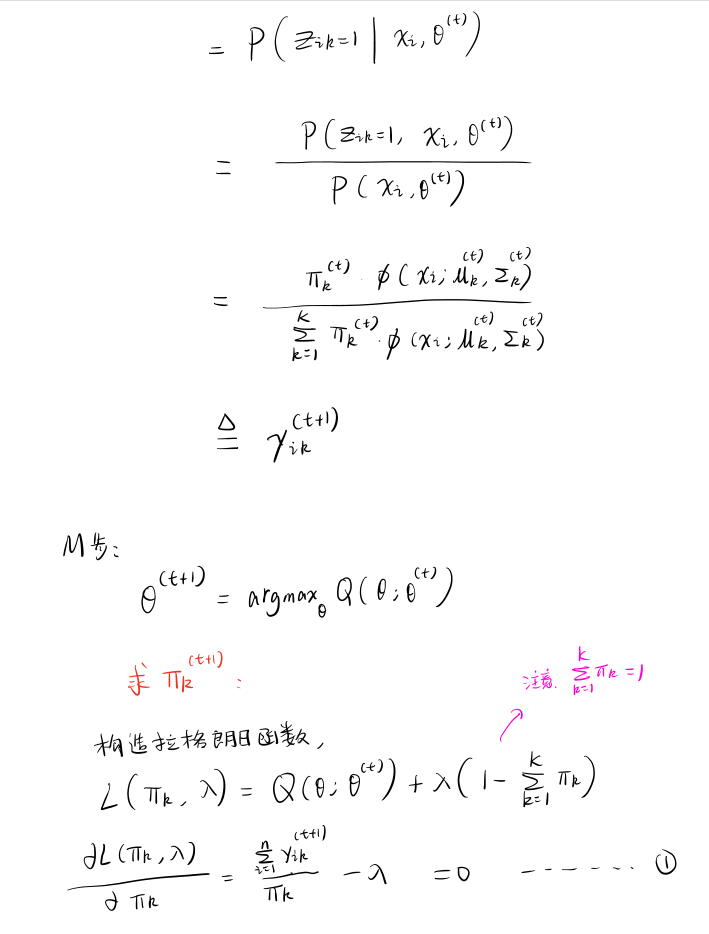 = P(z_{ik}=1 | x_i, θ^{(t)})
= \frac{P(z_{ik}=1, x_i, θ^{(t)})}{P(x_i, θ^{(t)})}
= \frac{π_k^{(t)} · φ(x_i; μ_k^{(t)}, Σ_k^{(t)})}{\sum_{k=1}^{K} π_k^{(t)} · φ(x_i; μ_k^{(t)}, Σ_k^{(t)})}
≜ γ_{ik}^{(t+1)}
M步:
θ^{(t+1)} = argmax_θ Q(θ; θ^{(t)})
求 π_k^{(t+1)}:
注意. \sum_{k=1}^{K} π_k = 1
构造拉格朗日函数,
L(π_k, λ) = Q(θ; θ^{(t)}) + λ(1 - \sum_{k=1}^{K} π_k)
\frac{∂L(π_k, λ)}{∂π_k} = \frac{\sum_{i=1}^{n} γ_{ik}^{(t+1)}}{π_k} - λ = 0 ------- ①